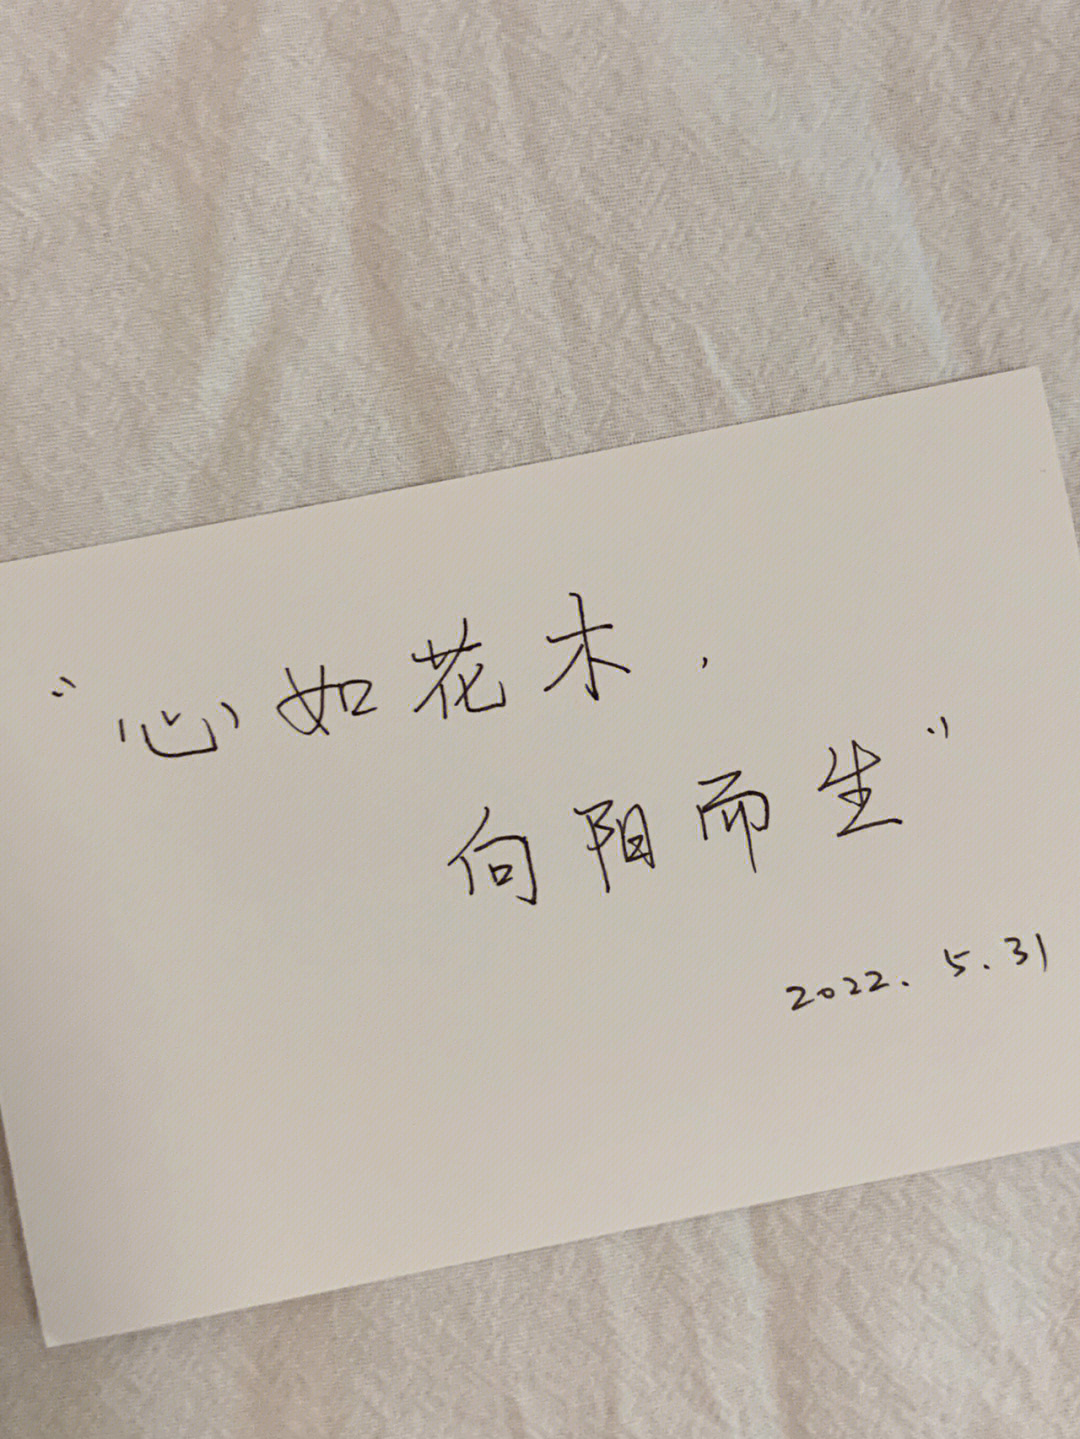 “心如花木，
向阳而生”
2022.5.31